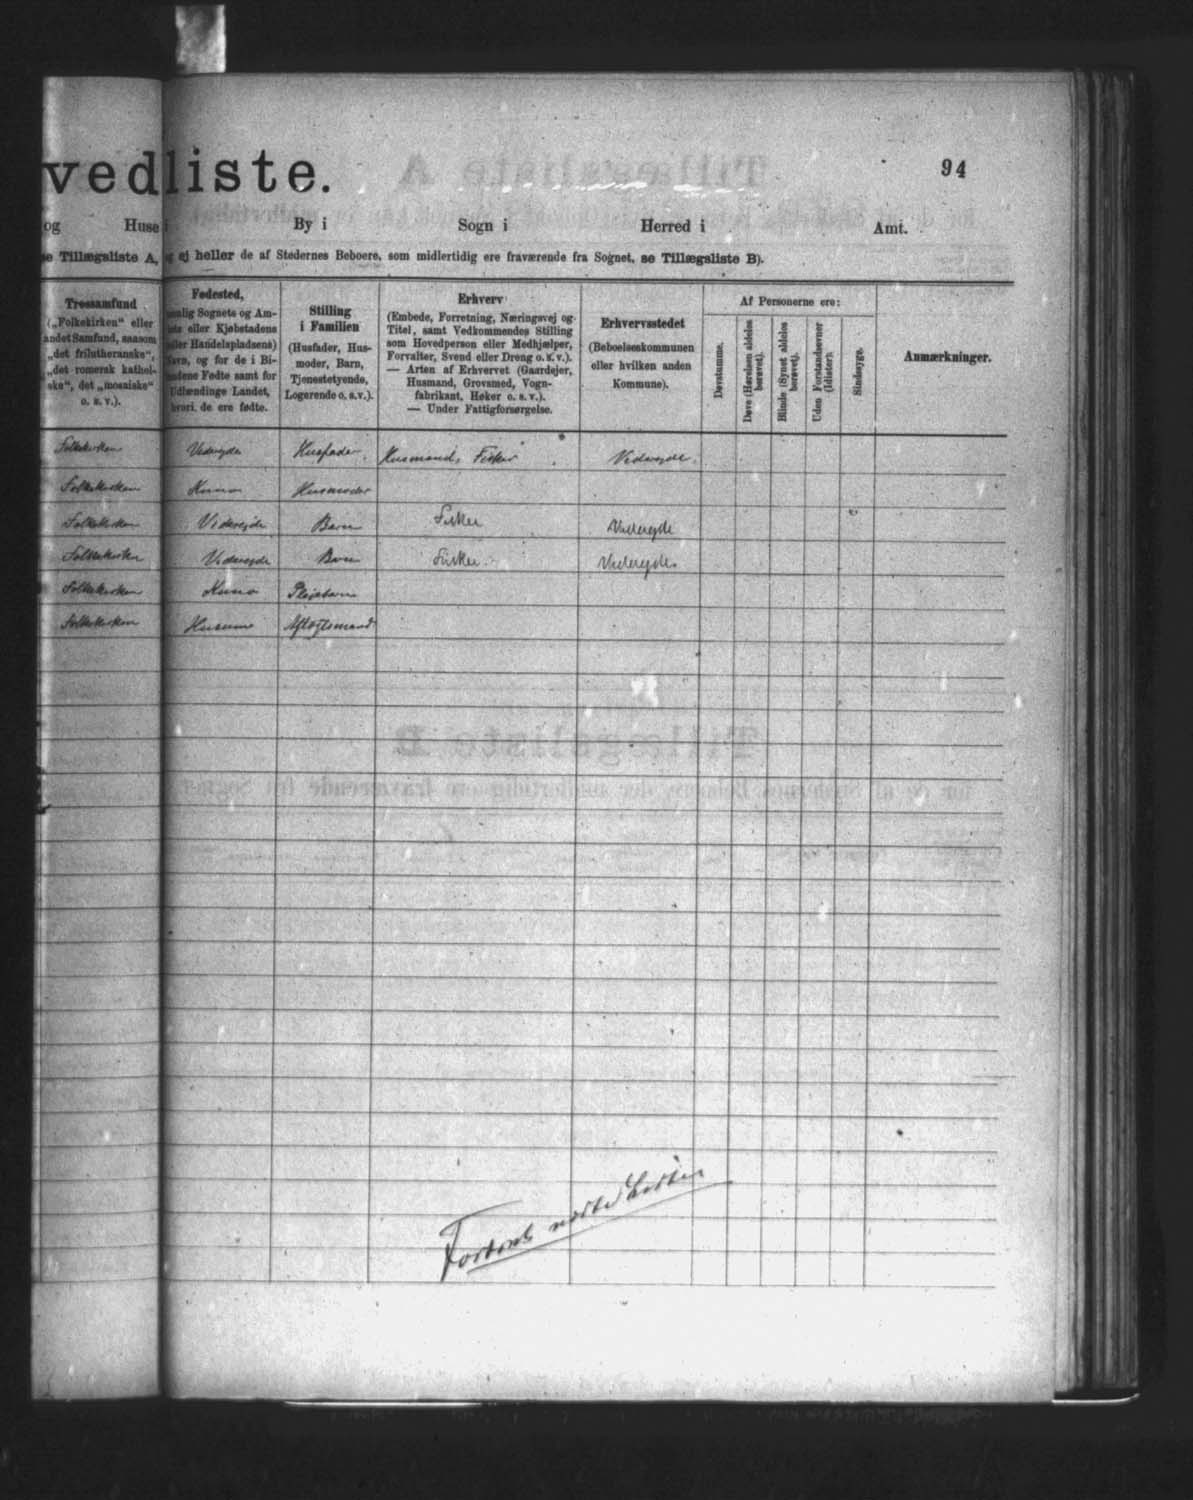 vedliste.
94
og Huse i By i Sogn i Herred i Amt.
se Tillægsliste A, og ej heller de af Stedernes Beboere, som midlertidig ere fraværende fra Sognet, se Tillægsliste B).
Trossamfund
(„Folkekirken“ eller
andet Samfund, saasom
„det frilutheranske“,
„det romersk kathol-
ske“, det „mosaiske“
o. s. v.).
Fødested,
nemlig Sognets og Am-
tets eller Kjøbstadens
(eller Handelspladsens)
Navn, og for de i Bi-
landene Fødte samt for
Udlændinge Landet,
hvori de ere fødte.
Stilling
i Familien
(Husfader, Hus-
moder, Barn,
Tjenestetyende,
Logerende o. s. v.).
Erhverv
(Embede, Forretning, Næringsvej og
Titel, samt Vedkommendes Stilling
som Hovedperson eller Medhjælper,
Forvalter, Svend eller Dreng o. s. v.).
— Arten af Erhvervet (Gaardejer,
Husmand, Grovsmed, Vogn-
fabrikant, Høker o. s. v.).
— Under Fattigforsørgelse.
Erhvervsstedet
(Beboelseskommunen
eller hvilken anden
Kommune).
Af Personerne ere:
Døvstumme.
Døve (Hørelsen aldeles
berøvet).
Blinde (Synet aldeles
berøvet).
Uden Forstandsevner
(Idioter).
Sindssyge.
Anmærkninger.
Folkekirken Viderejde Husfader Husmand, Fisker Viderejde
Folkekirken Kunø Husmoder
Folkekirken Viderejde Barn Fisker Viderejde
Folkekirken Viderejde Barn Fisker Viderejde
Folkekirken Kunø Plejebarn
Folkekirken Husum Aftægtsmand